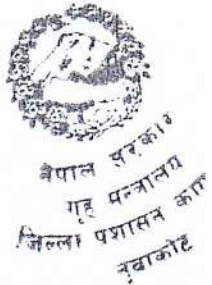 नेपाल सरकार
गृह मन्त्रालय
जिल्ला प्रशासन
नुवाकोट